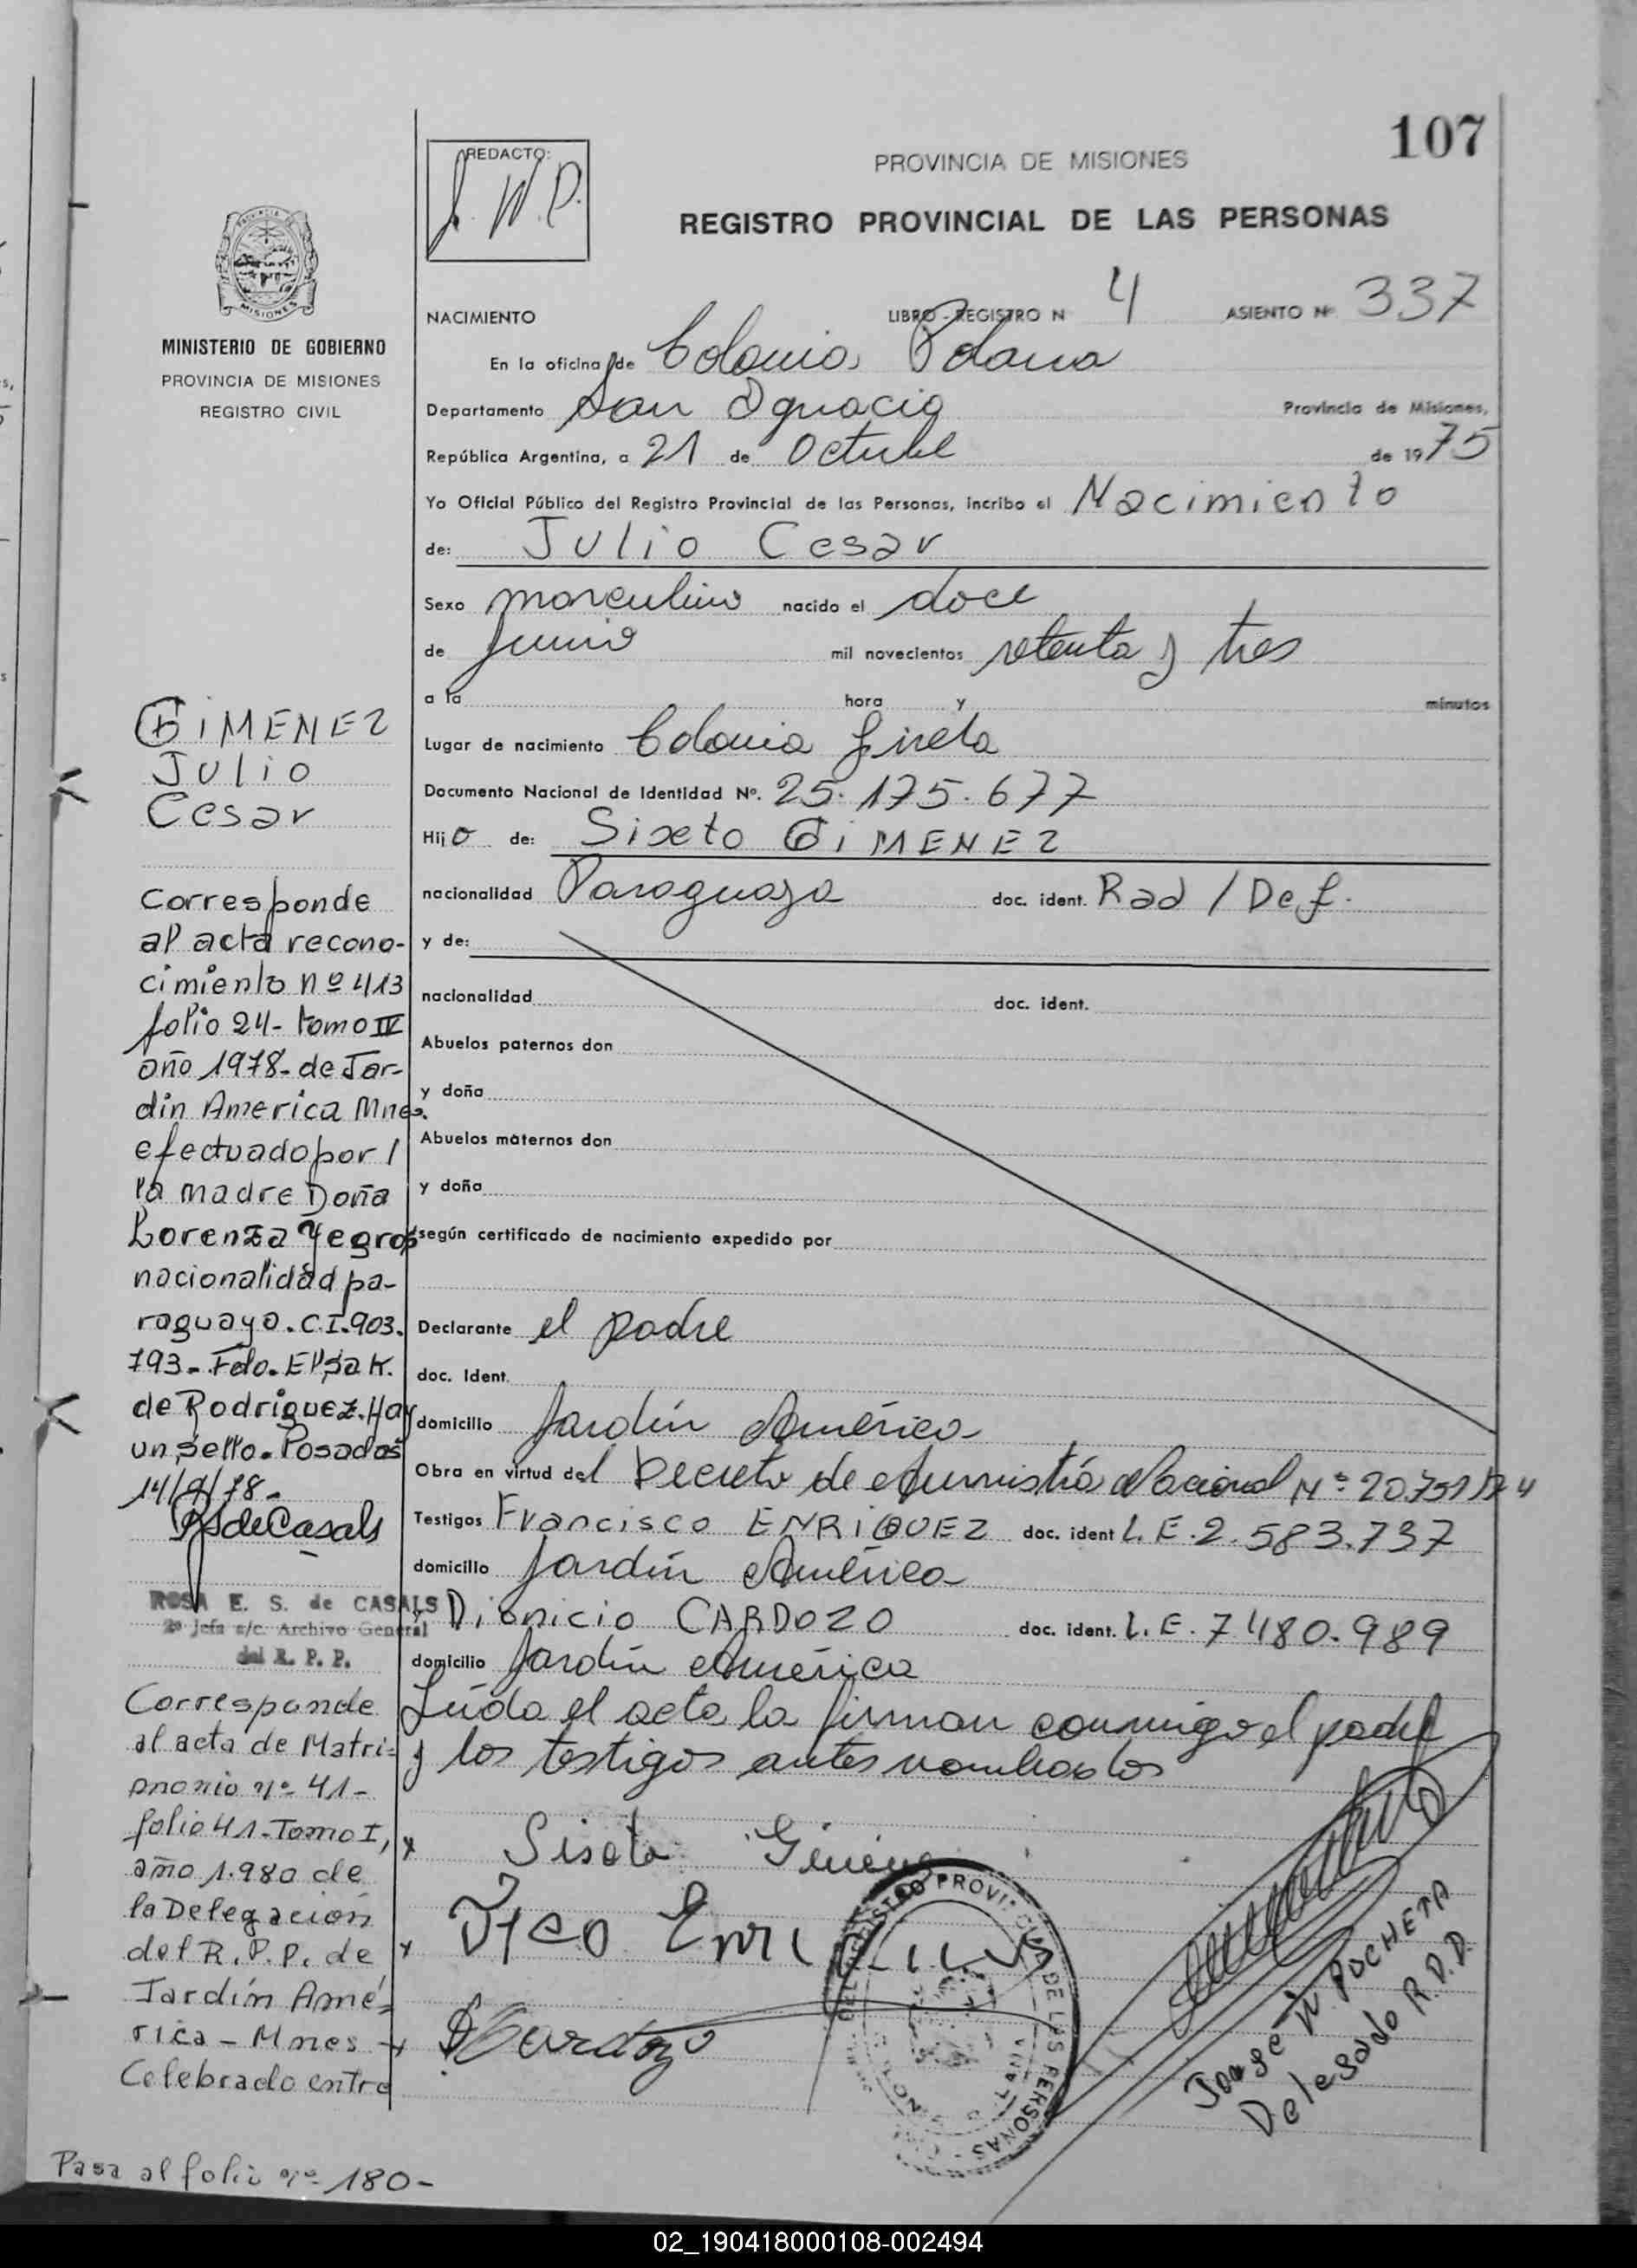 107
REDACTO:
J. W. P.
PROVINCIA DE MISIONES
REGISTRO PROVINCIAL DE LAS PERSONAS
MISIONES
MINISTERIO DE GOBIERNO
PROVINCIA DE MISIONES
REGISTRO CIVIL
NACIMIENTO LIBRO - REGISTRO N 4 ASIENTO Nº 337
En la oficina de Colonia Polana
Departamento San Ignacio Provincia de Misiones,
República Argentina, a 21 de Octubre de 1975
Yo Oficial Público del Registro Provincial de las Personas, incribo el Nacimiento
de: Julio Cesar
Sexo masculino nacido el doce
de junio mil novecientos setenta y tres
a la hora y minutos
Lugar de nacimiento Colonia Gisela
Documento Nacional de Identidad Nº. 25.175.677
Hijo de: Sixto GiMENEZ
nacionalidad Paraguaya doc. ident. Rad / Def.
y de:
nacionalidad doc. ident.
Abuelos paternos don
y doña
Abuelos maternos don
y doña
según certificado de nacimiento expedido por
Declarante el padre
doc. Ident.
domicilio Jardín América
Obra en virtud del Decreto de Amnistía Nacional Nº 20.751/74
Testigos Francisco ENRiQUEZ doc. ident L.E. 2.583.737
domicilio Jardín América
y Dionicio CARDOZO doc. ident. L.E. 7480.989
domicilio Jardín América
Leída el acta la firman conmigo el padre
y los testigos antes nombrados
x Sisoto Gimenez
x Fco Enri
x Cardozo
DEL REGISTRO PROVINCIAL DE LAS PERSONAS
Jorge W. POCHETA
Delegado R.P.P.
GiMENEZ
Julio
Cesar
Corresponde
al acta recono-
cimiento nº 413
folio 24- tomo IV
año 1978- de Jar-
din America Mnes.
efectuado por /
la madre Doña
Lorenza Yegros
nacionalidad pa-
raguaya. C.I. 903.
793- Fdo. Elsa K.
de Rodriguez. Hay
un sello. Posadas
14/9/78-
RSdeCasals
ROSA E. S. de CASALS
2º Jefa s/c. Archivo General
del R. P. P.
Corresponde
al acta de Matri-
monio nº 41-
folio 41- Tomo I,
año 1.980 de
la Delegación
del R.P.P. de
Jardín Amé-
rica - Mnes -
Celebrado entre
Pasa al folio nº 180-
02_190418000108-002494